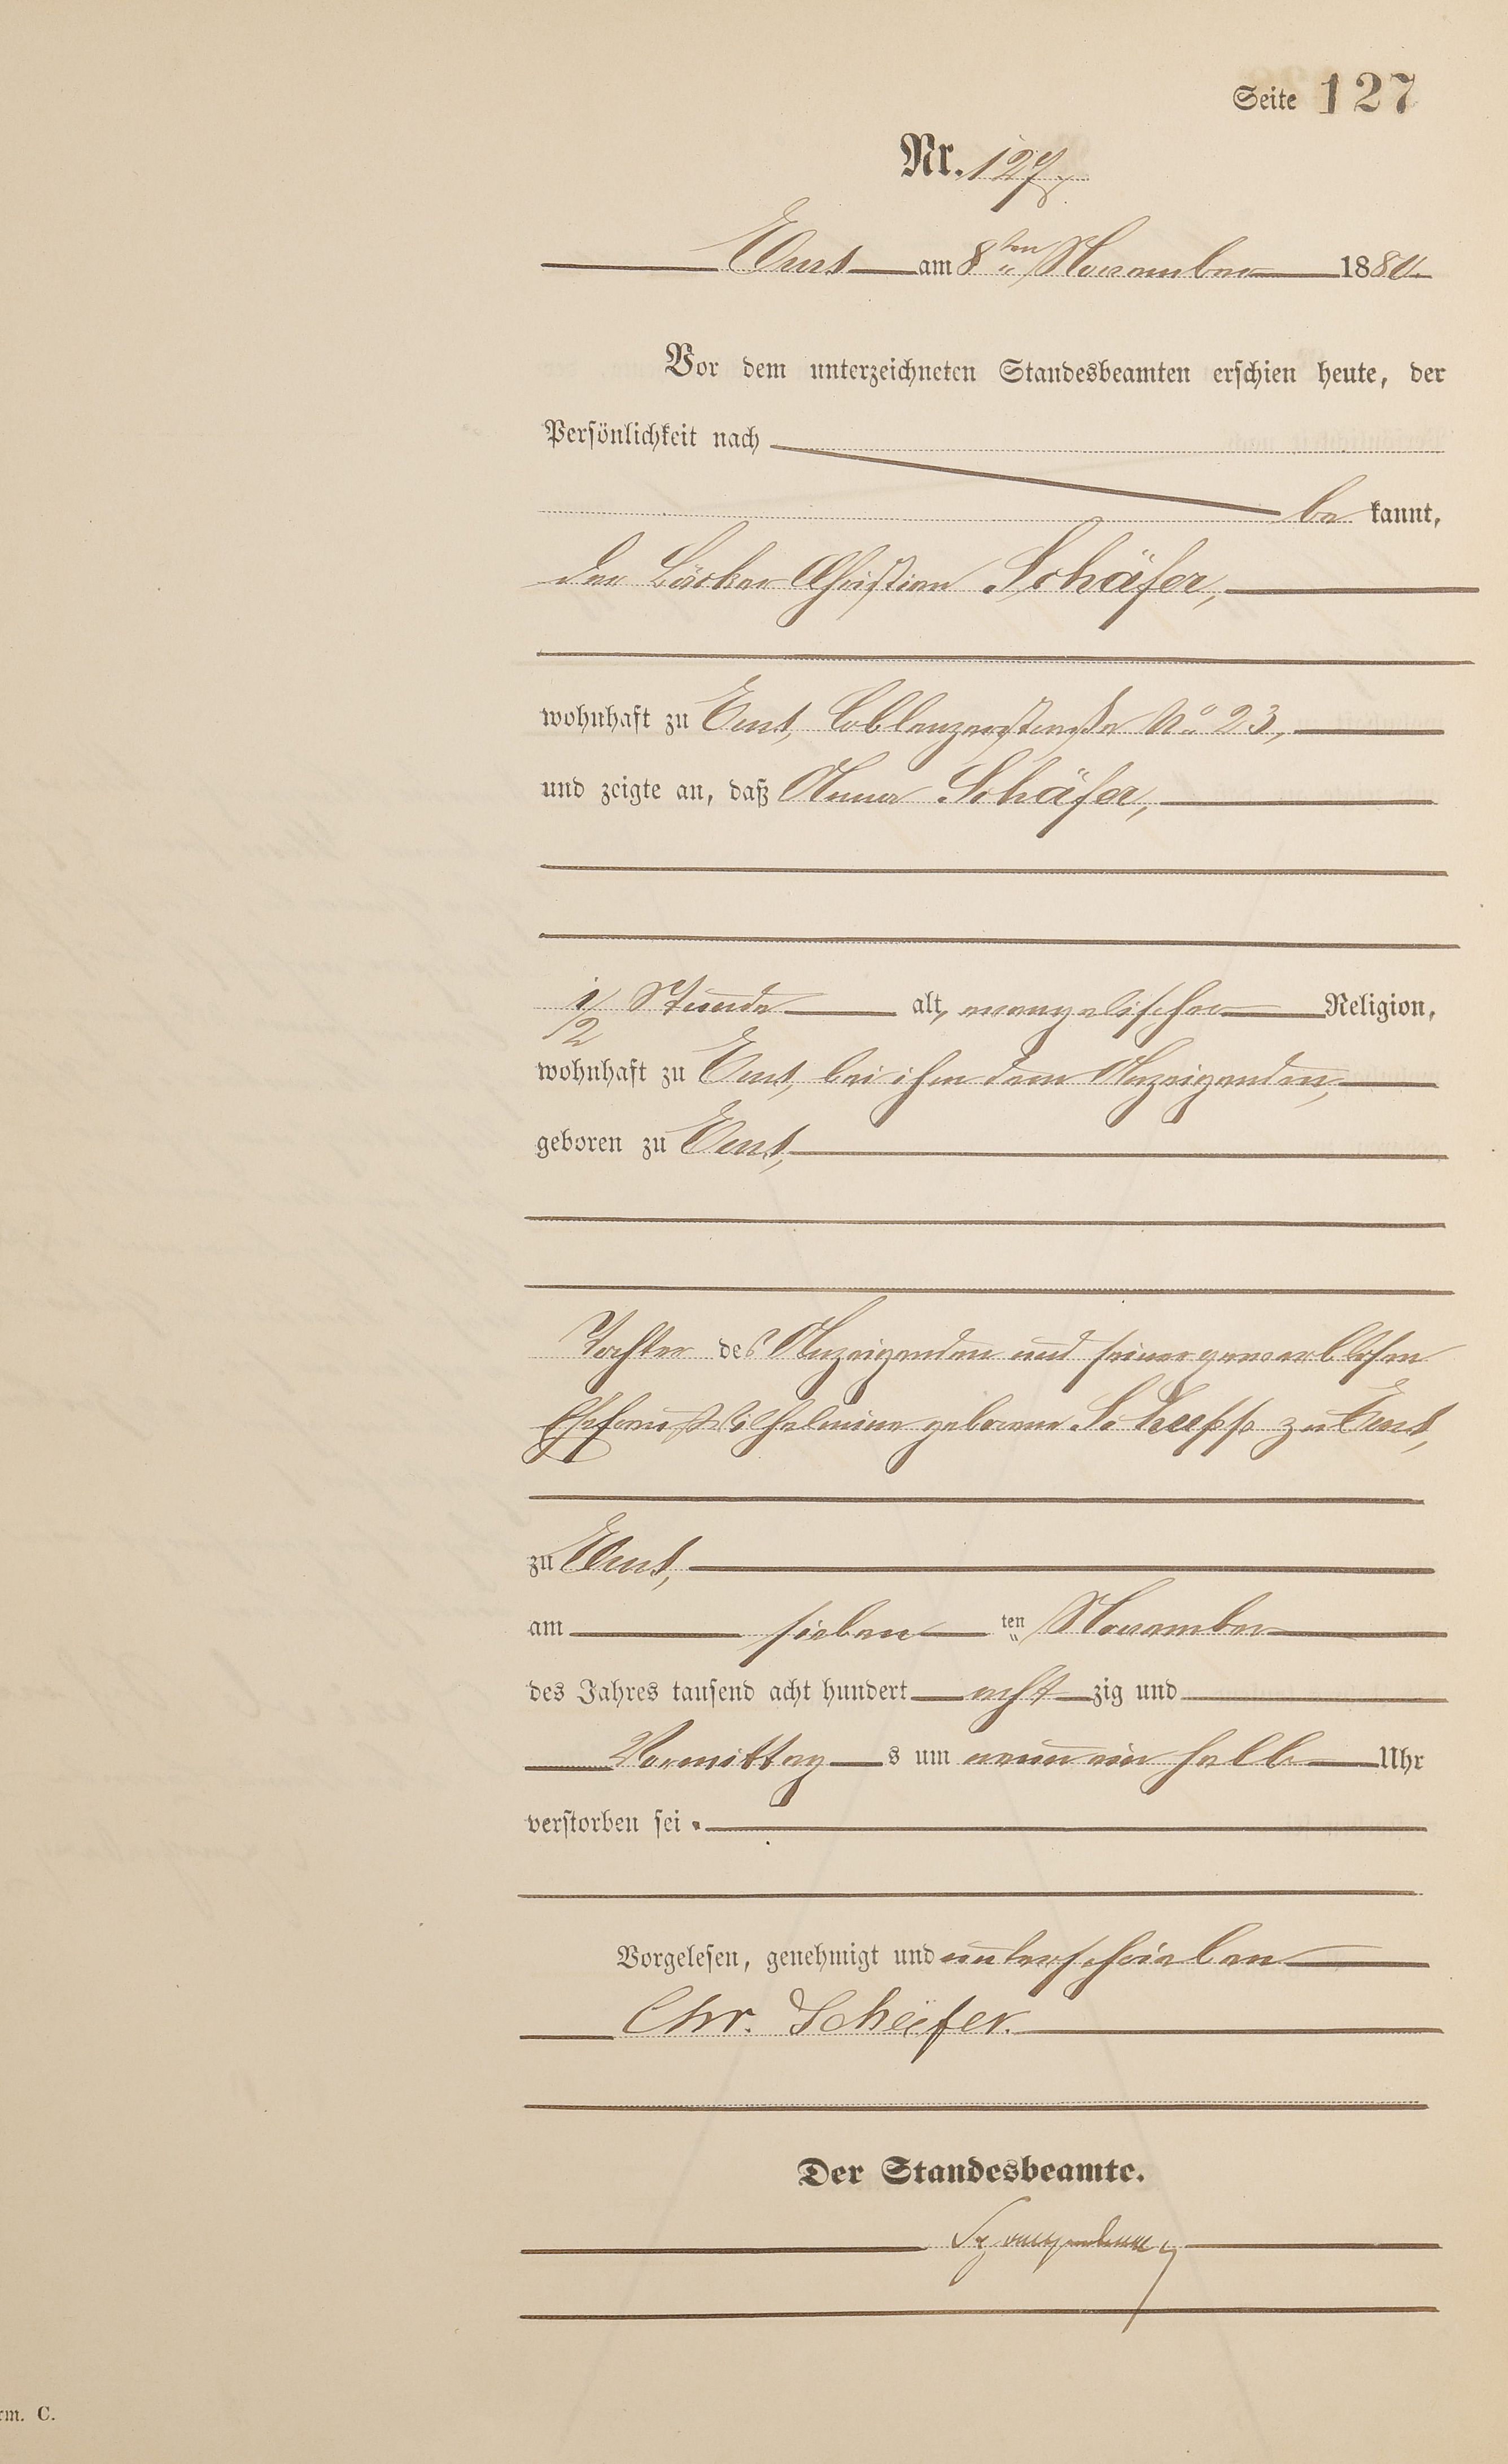 Seite 127
Nr. 127.
Ems am 8ten November 1880.
Vor dem unterzeichneten Standesbeamten erschien heute, der
Persönlichkeit nach
be kannt,
der Bäcker Christian Schäfer,
wohnhaft zu Ems, Coblenzerstraße No. 23,
und zeigte an, daß Anna Schäfer,
1/2 Stunde alt, evangelischer Religion,
wohnhaft zu Ems, bei ihm dem Anzeigenden,
geboren zu Ems,
Tochter des Anzeigenden und seiner gewerblosen
Ehefrau Wilhelmine geborene Schupp zu Ems,
zu Ems,
am sieben ten November
des Jahres tausend acht hundert acht zig und
Vormittag s um neun ein halb Uhr
verstorben sei.
Vorgelesen, genehmigt und unterschrieben
Chr. Schäfer.
Der Standesbeamte.
rm. C.